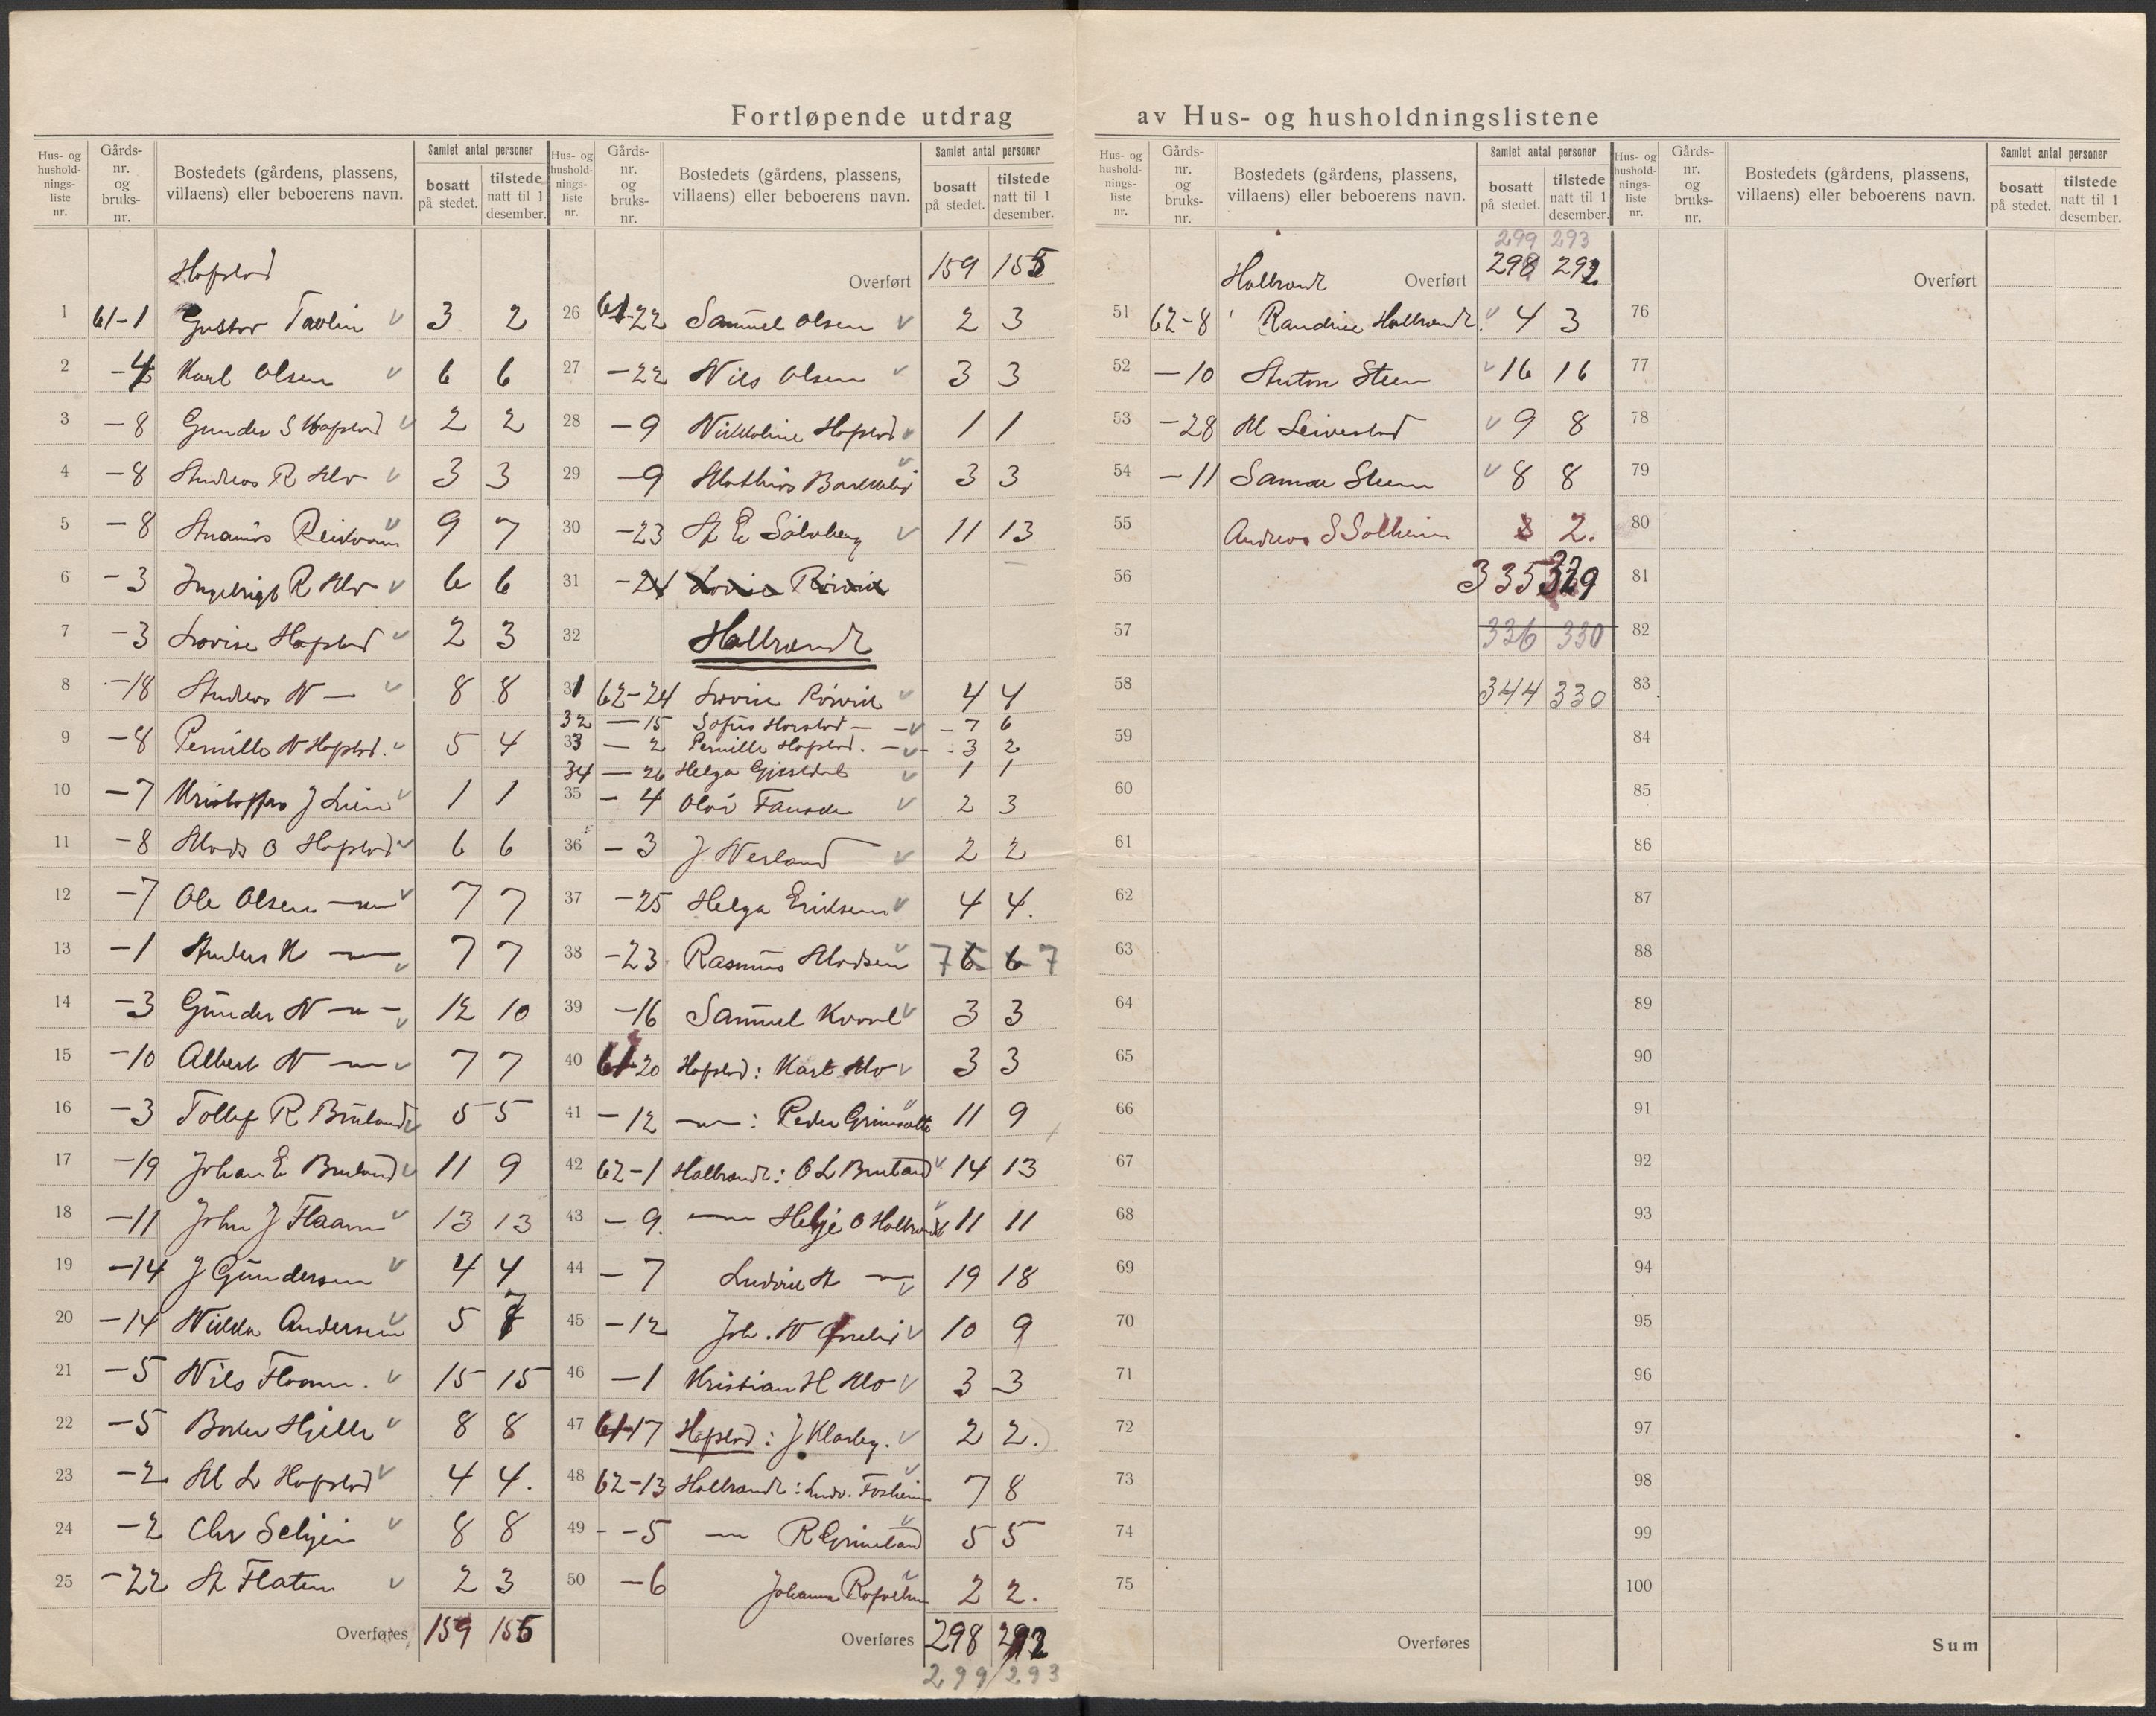 Fortløpende utdrag av Hus- og husholdningslistene
Hus- og hushold-nings-liste nr. Gårds-nr. og bruks-nr. Bostedets (gårdens, plassens, villaens) eller beboerens navn. Samlet antal personer bosatt på stedet. tilstede natt til 1 desember.
Hafstad
1 61-1 Gustav 3 2
2 -4 Karl Olsen 6 6
3 -8 Gunder S Hafstad 2 2
4 -8 Andreas R Mo 3 3
5 -8 Ananias Reikvam 9 7
6 -3 Ingebrigt R Mo 6 6
7 -3 Lovise Hafstad 2 3
8 -18 Andreas N — 8 8
9 -8 Pernille N Hafstad. 5 4
10 -7 Kristoffer J Lien 1 1
11 -8 Mads O Hafstad 6 6
12 -7 Ole Olsen —"— 7 7
13 -1 Anders N —"— 7 7
14 -3 Gunder N —"— 12 10
15 -10 Albert N —"— 7 7
16 -3 Tollef R Bruland 5 5
17 -19 Johan E Bruland 11 9
18 -11 John J Flaam 13 13
19 -14 J Gundersen 4 4
20 -14 Nikka Andersen 5 7
21 -5 Nils Flaam. 15 15
22 -5 Hjelle 8 8
23 -2 M L Hafstad 4 4.
24 -2 Chr Seljen 8 8
25 -22 A Flaten 2 3
Overføres 159 155
Hus- og hushold-nings-liste nr. Gårds-nr. og bruks-nr. Bostedets (gårdens, plassens, villaens) eller beboerens navn. Samlet antal personer bosatt på stedet. tilstede natt til 1 desember.
Overført 159 155
26 61-22 Samuel Olsen 2 3
27 -22 Nils Olsen 3 3
28 -9 Nikkoline Hafstad 1 1
29 -9 Mathias 3 3
30 -23 A E Solvberg 11 13
31 -24 Lovise Rörvik
32 Halbrendt
31 62-24 Lovise Rörvik 4 4
32 — 15 Sofus Harstad — 7 6
33 — 2 Pernille Hafstad. — 3 2
34 — 26 Helga Gjesdal 1 1
35 - 4 Olai 2 3
36 - 3 J Nesland 2 2
37 -25 Helga Eriksen 4 4.
38 -23 Rasmus Madsen 7 6 6 7
39 -16 Samuel Kvaal 3 3
40 61-20 Hafstad: Karl Mo 3 3
41 -12 —"—: Peder 11 9
42 62-1 Halbrendt: O L Bruland 14 13
43 -9. —"— Helje O Halbrendt 11 11
44 - 7 Ludvik A —"— 19 18
45 -12 Joh. N 10 9
46 -1 Kristian H Mo 3 3
47 61-17 Hafstad: J Klarberg. 2 2.
48 62-13 Halbrendt: Ludv. Fosheim 7 8
49 - -5 —"— R Grimeland 5 5
50 -6 Johanna 2 2.
Overføres 298 292
299 / 293
Hus- og hushold-nings-liste nr. Gårds-nr. og bruks-nr. Bostedets (gårdens, plassens, villaens) eller beboerens navn. Samlet antal personer bosatt på stedet. tilstede natt til 1 desember.
299 293
Halbrendt Overført 298 292
51 62-8 Randine Halbrendt. 4 3
52 -10 Anton Steen 16 16
53 -28 M Leivestad 9 8
54 -11 Samson Steen 8 8
55 Andreas S Solheim 2.
56 335 329
57 336 330
58 344 330
59
60
61
62
63
64
65
66
67
68
69
70
71
72
73
74
75
Overføres
Hus- og hushold-nings-liste nr. Gårds-nr. og bruks-nr. Bostedets (gårdens, plassens, villaens) eller beboerens navn. Samlet antal personer bosatt på stedet. tilstede natt til 1 desember.
Overført
76
77
78
79
80
81
82
83
84
85
86
87
88
89
90
91
92
93
94
95
96
97
98
99
100
Sum